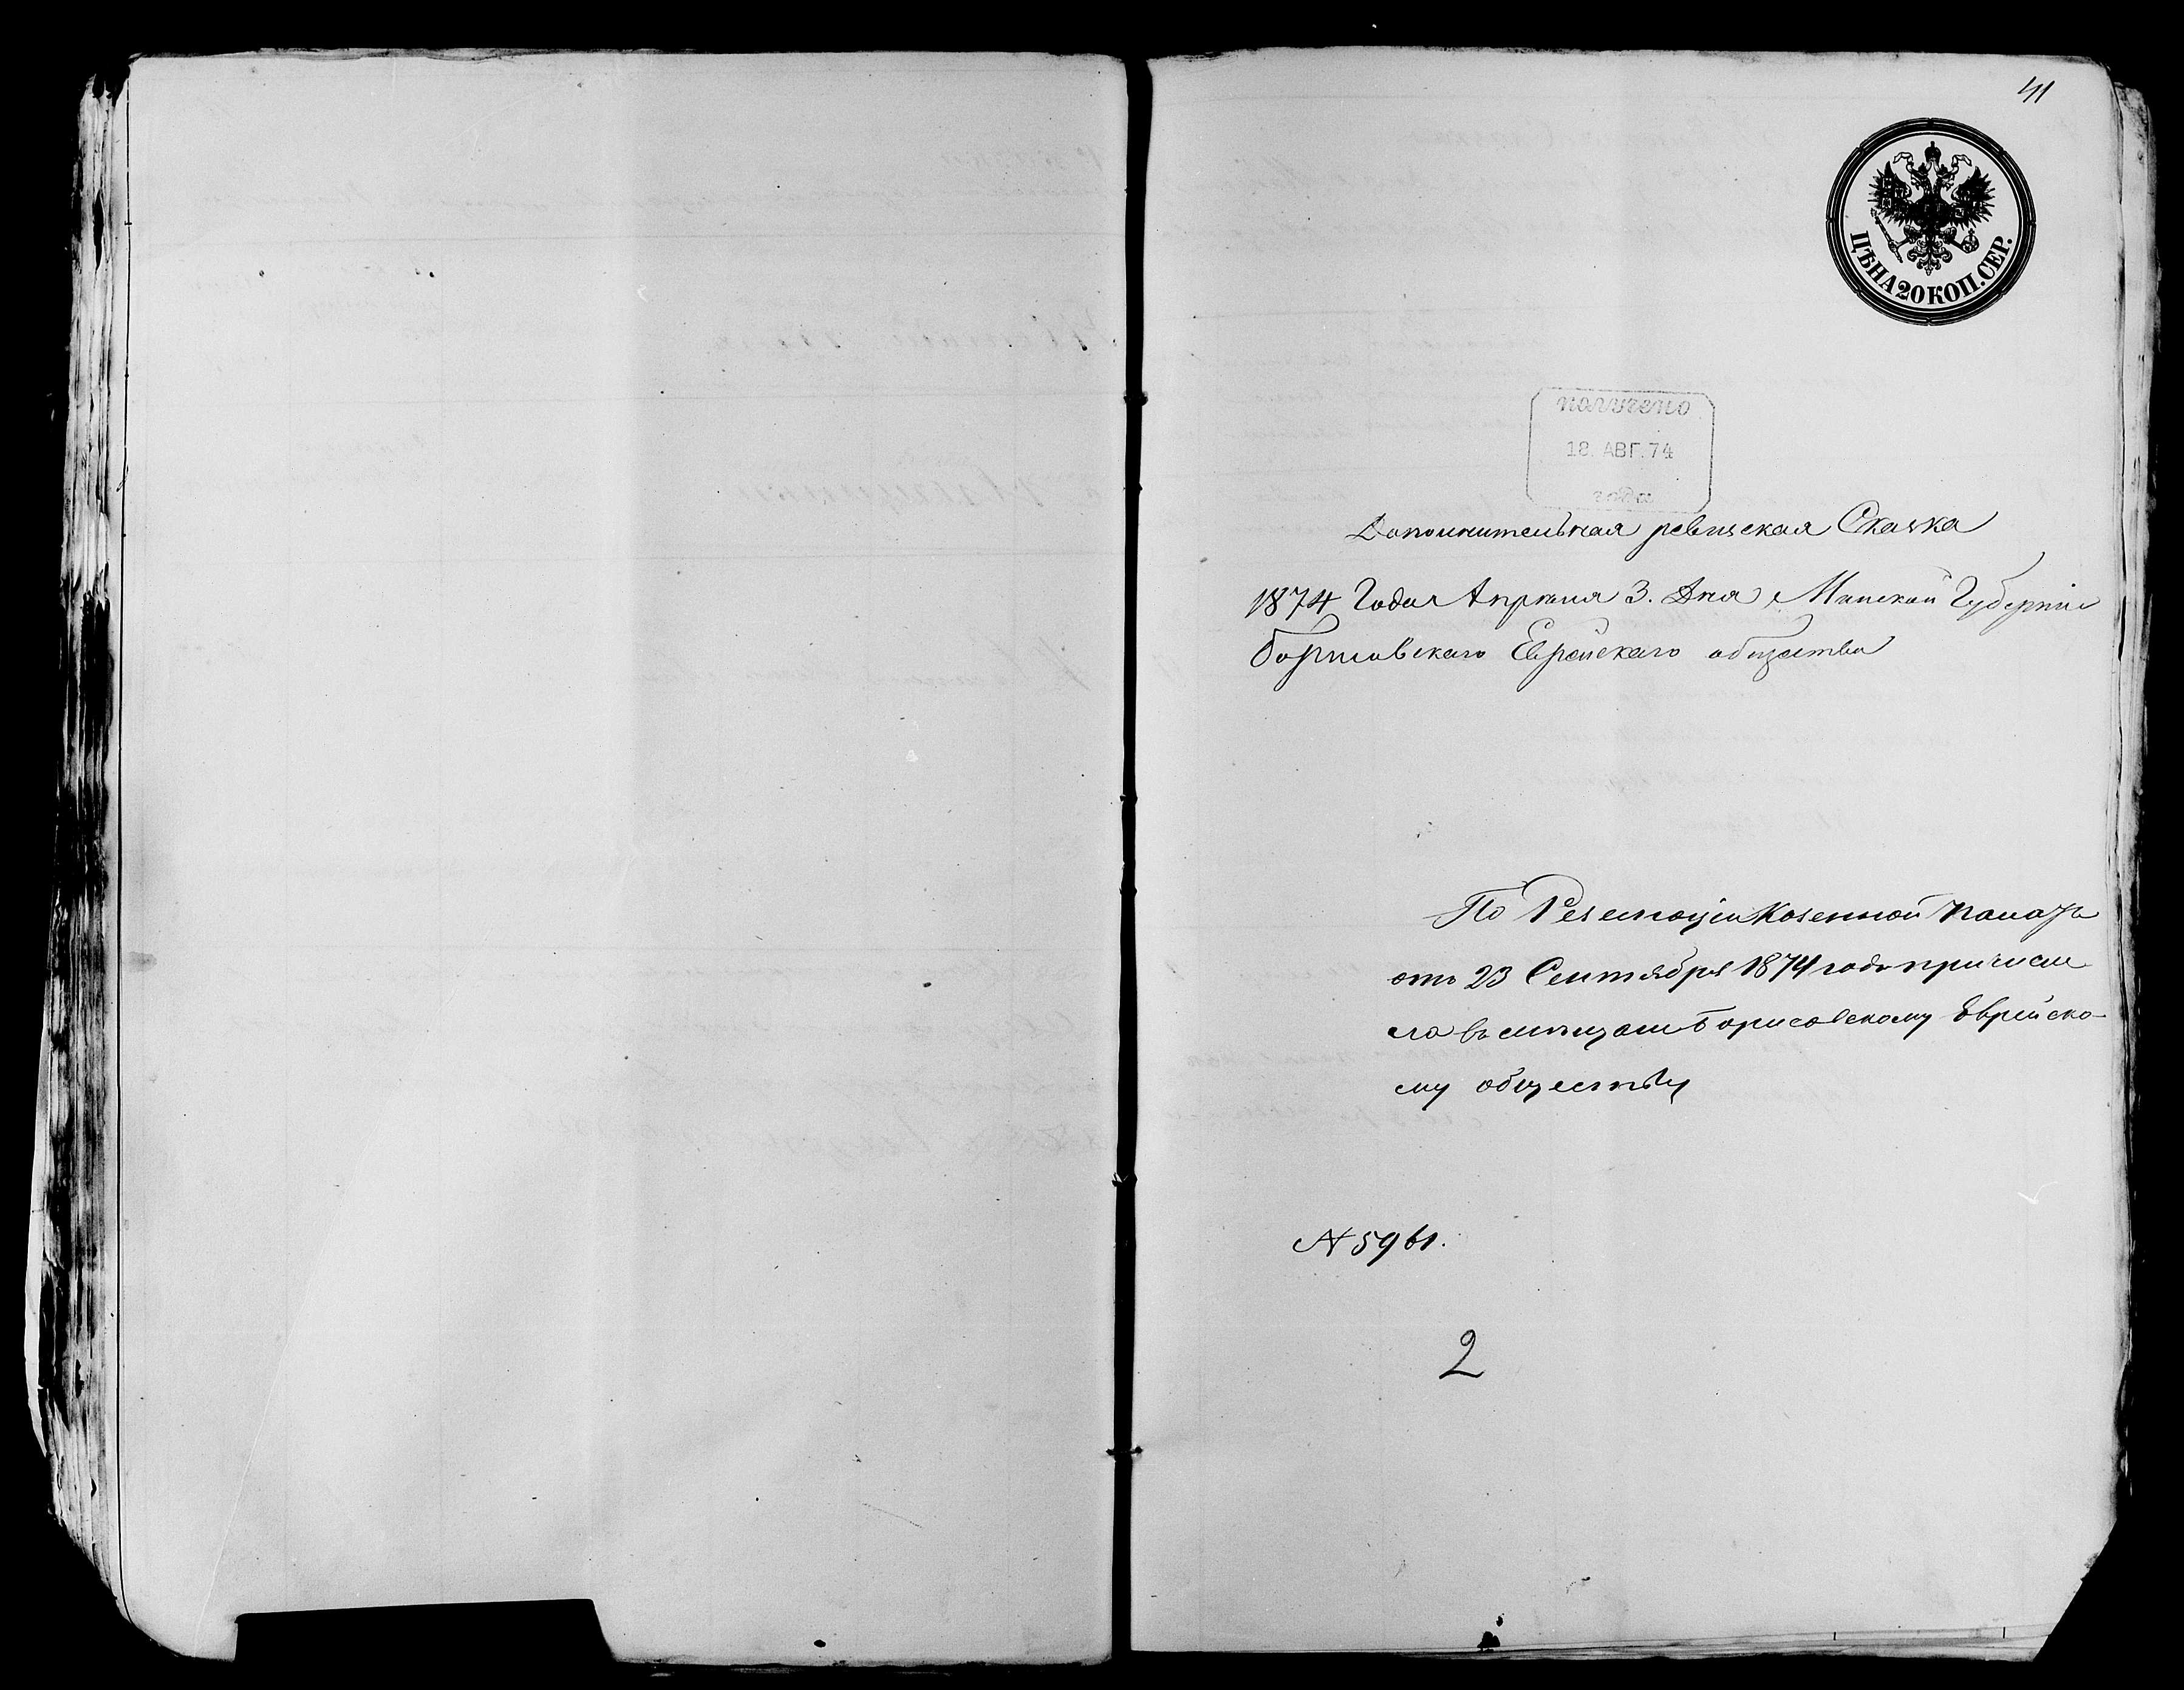 41
ЦѢНА 20 КОП. СЕР.
получено
18. АВГ. 74
года
Дополнительная ревизская Сказка
1874 Года Апрѣля 3. Дня Минской Губерніи
Борисовскаго Еврейскаго общества
По Резолюціи Казенной Палаты
отъ 23 Сентября 1874 года причисле
на въ мѣщане Борисовскому Еврейско-
му обществу
№ 5961.
2